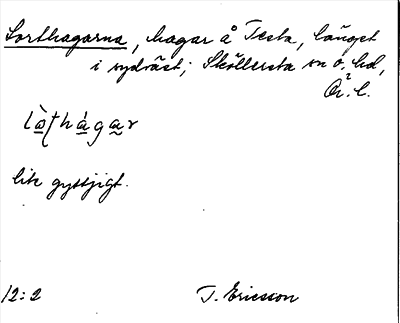 Lorthagarna, hagar å Testa, längst
i sydväst; Sköllersta sn o. hd,
Ör. l.
lo̱ṯhága̱r
litε gyttjigt.
12:2 T. Ericsson